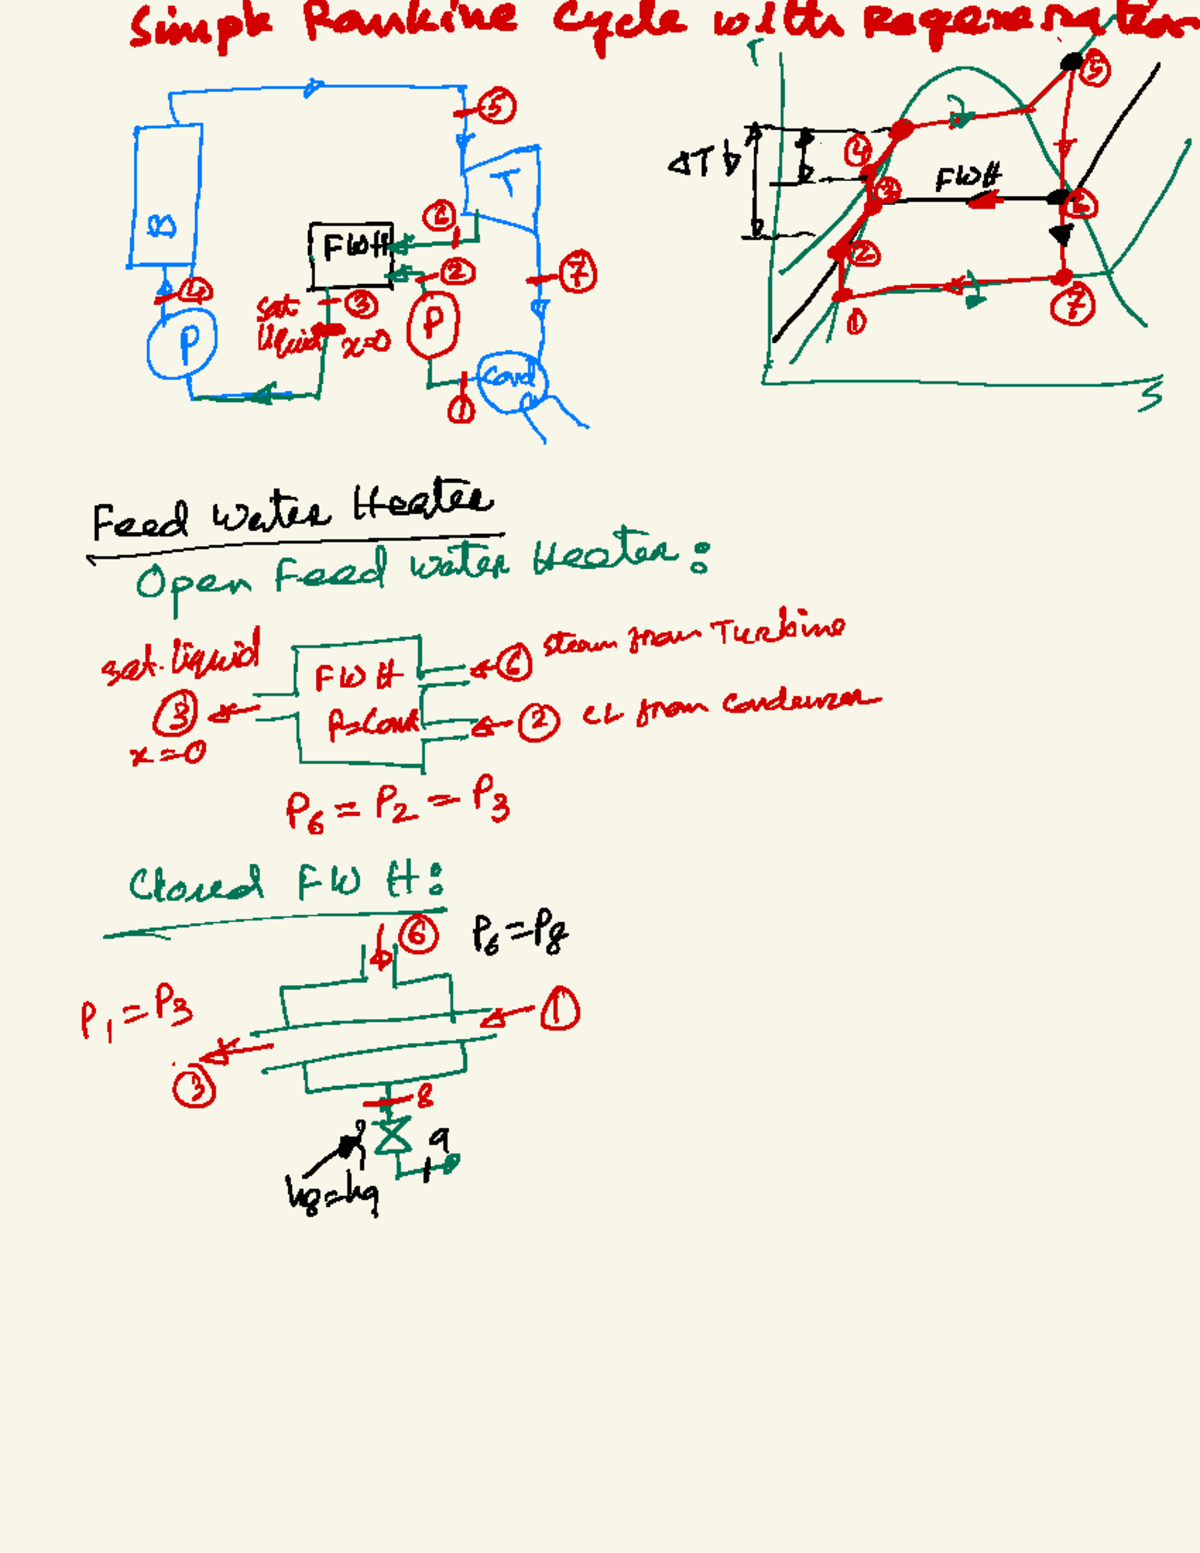 Simple Rankine Cycle with Regeneration
B
5
T
2
FWH
2
7
4
P
sat
liquid
3
x=0
P
Cond
1
T
5
ΔTb
4
3
FWH
6
2
1
7
S
Feed Water Heater
Open Feed Water Heater:
sat. liquid
3
x=0
FWH
P=Const
6 steam from Turbine
2 CL from Condenser
P6 = P2 = P3
Closed FWH:
6
P6=P8
P1=P3
1
3
8
9
h8=h9